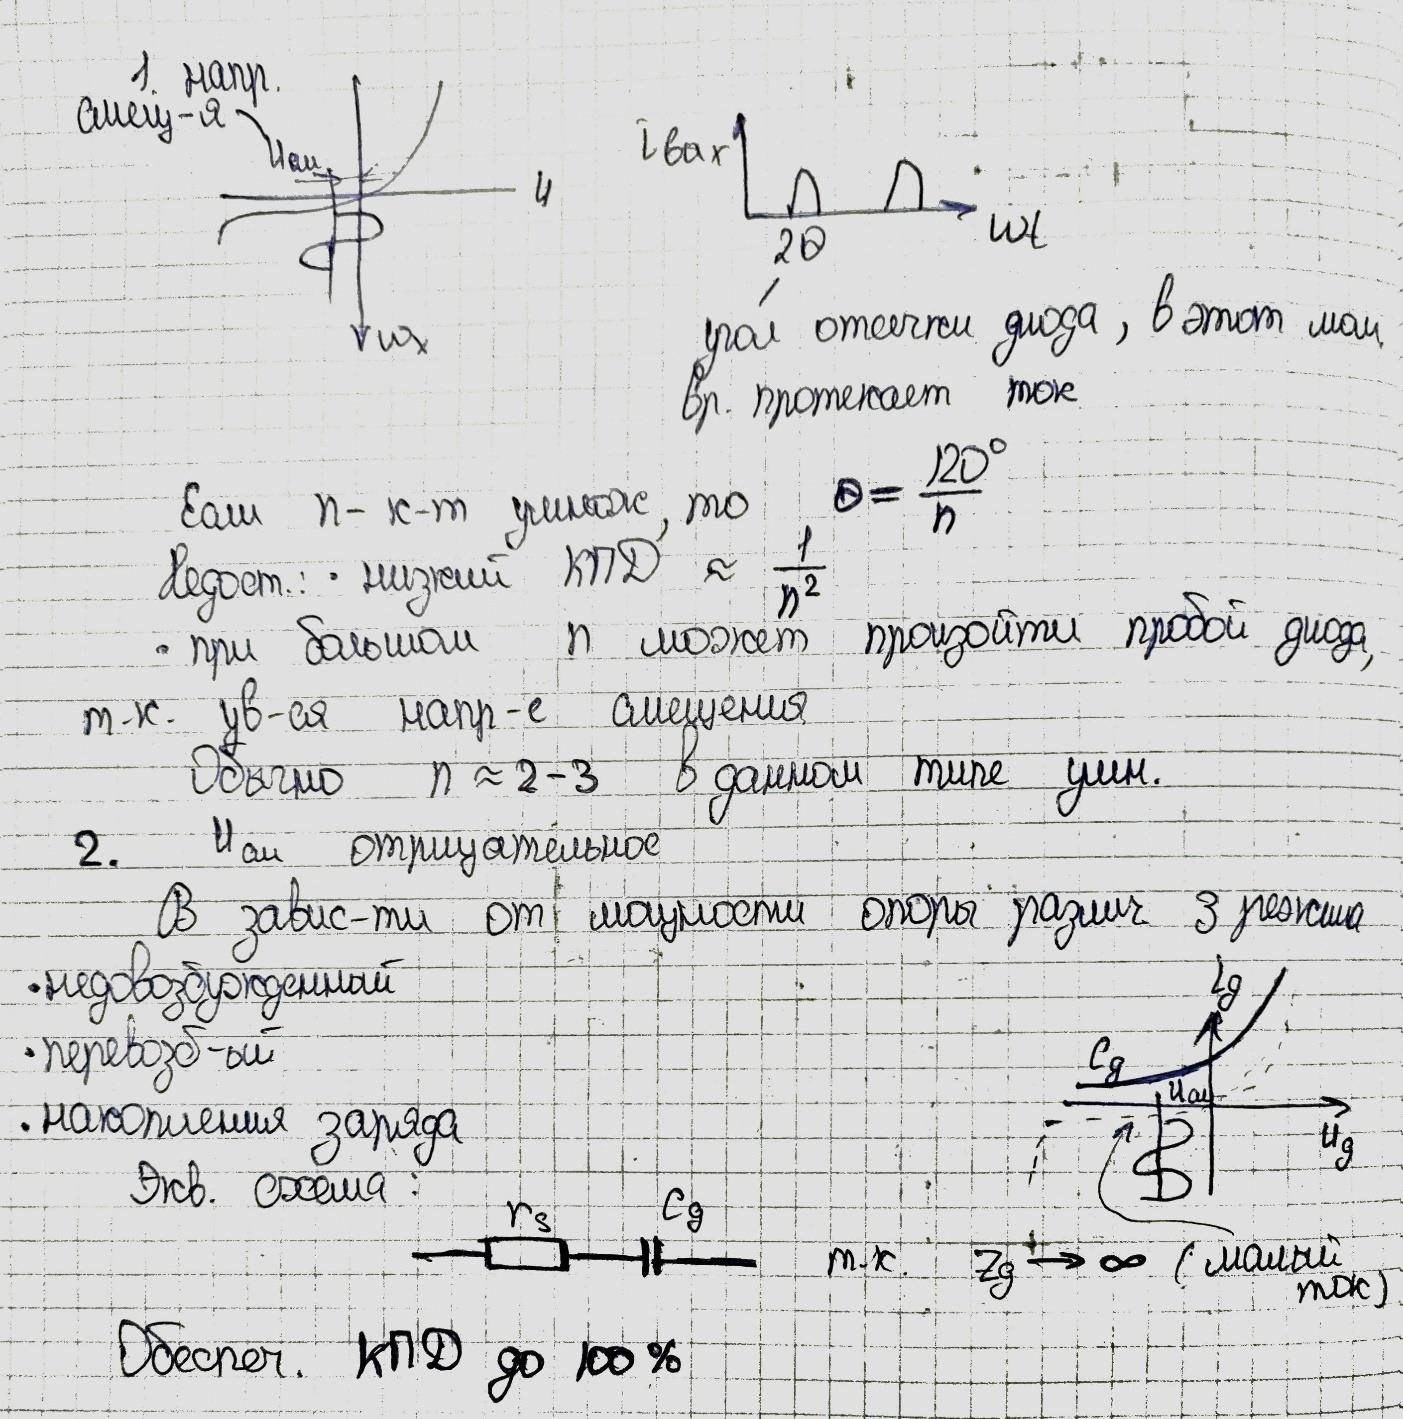 1. напр.
смещ-я
Uсм
U
ωx
iвах
ωt
2θ
угол отсечки диода, в этот мом.
вр. протекает ток
Если n - к-т умнож, то θ = 120°/n
Недост.: · низкий КПД ≈ 1/n²
· при большом n может произойти пробой диода,
т.к. ув-ся напр-е смещения
Обычно n ≈ 2-3 в данном типе умн.
2. Uсм отрицательное
В завис-ти от мощности опоры различ 3 режима
· недовозбужденный
· перевозб-ый
· накопления заряда
ig
Cg
Uсм
Ug
Экв. схема:
rs Cg
т.к. Zg → ∞ (малый
ток)
Обеспеч. КПД до 100%